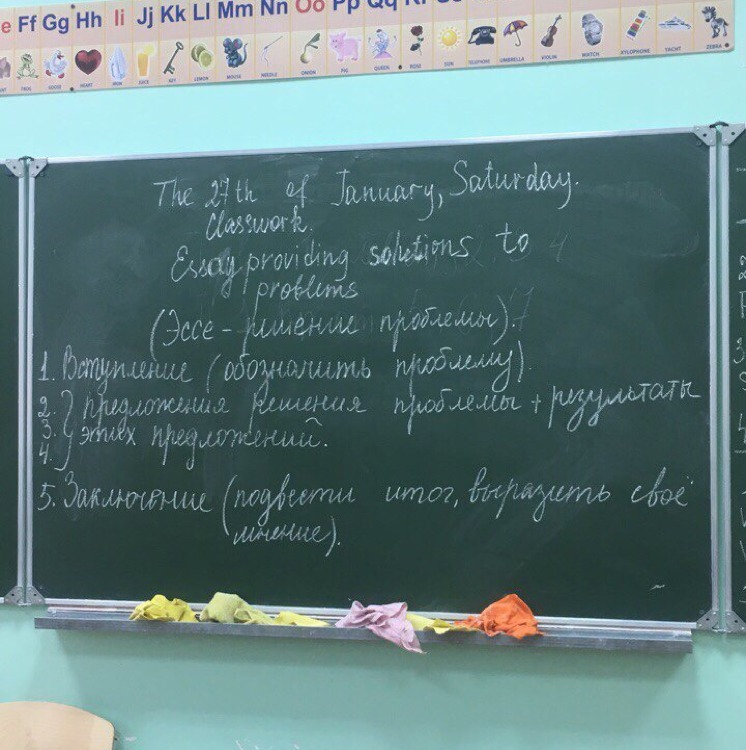 e Ff Gg Hh Ii Jj Kk Ll Mm Nn Oo Pp Qq
FROG GOOSE HEART IRON JUICE KEY LEMON MOUSE NEEDLE ONION PIG QUEEN ROSE SUN TELEPHONE UMBRELLA VIOLIN WATCH XYLOPHONE YACHT ZEBRA
The 27th of January, Saturday.
Classwork.
Essay providing solutions to
problems
(Эссе - решение проблемы).
1. Вступление (обозначить проблему).
2. } предложения решения проблемы + результаты
3. } этих предложений.
4. }
5. Заключение (подвести итог, выразить своё
мнение).